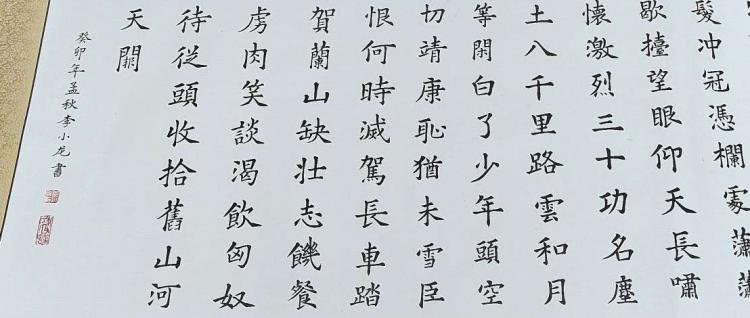 髮冲冠憑欄處瀟瀟
歇擡望眼仰天長嘯
懷激烈三十功名塵
土八千里路雲和月
等閑白了少年頭空
切靖康恥猶未雪臣
恨何時滅駕長車踏
賀蘭山缺壯志饑餐
虜肉笑談渴飲匈奴
待從頭收拾舊山河
天闕
癸卯年孟秋李小龙書